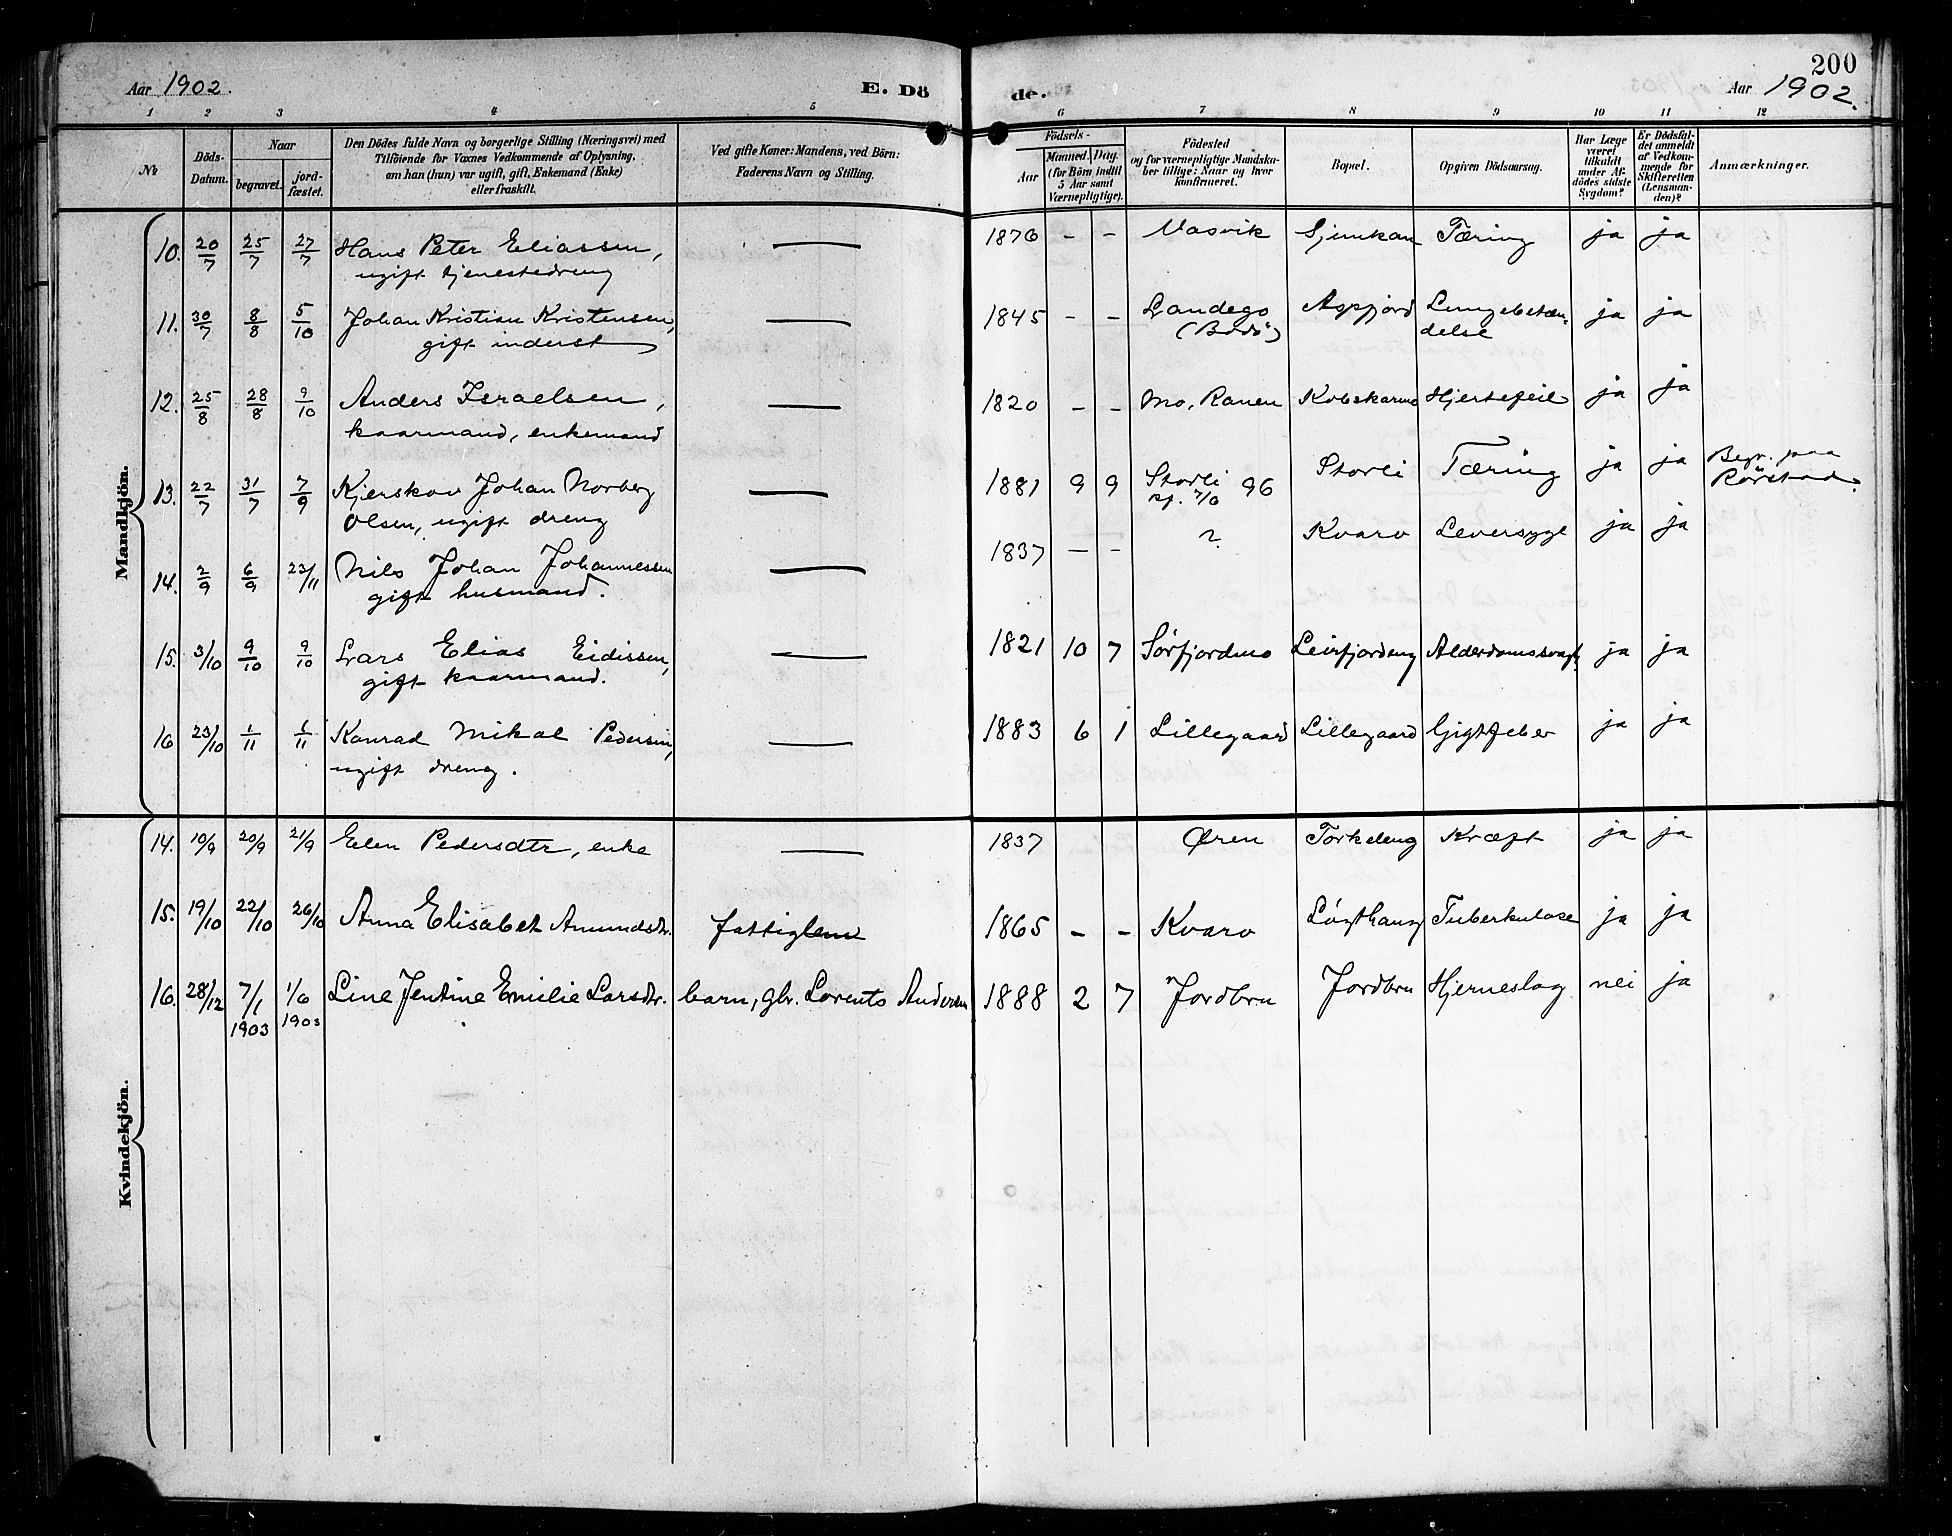 200
Aar 1902.
E. Dö
de.
Aar 1902.
1 2 3 4 5 6 7 8 9 10 11 12
No
Döds-
Datum.
Naar
begravet.
jord-
fæstet.
Den Dödes fulde Navn og borgerlige Stilling (Næringsvei) med
Tilföiende for Voxnes Vedkommende af Oplysning,
om han (hun) var ugift, gift, Enkemand (Enke)
eller fraskilt.
Ved gifte Koner: Mandens, ved Börn:
Faderens Navn og Stilling.
Födsels-
Aar
Maaned. Dag.
(for Börn indtil
5 Aar samt
Værnepligtige).
Födested
og for værnepligtige Mandska-
ber tillige: Naar og hvor
konfirmeret.
Bopæl.
Opgiven Dödsaarsag.
Har Læge
været
tilkaldt
under Af-
dödes sidste
Sygdom?
Er Dödsfal-
det anmeldt
af Vedkom-
mende for
Skifteretten
(Lensman-
den)?
Anmærkninger.
Mandkjön.
10. 20/7 25/7 27/7 Hans Peter Eliassen, — 1876 - - Masvik Tæring ja ja
ugift tjenestedreng
11. 30/7 8/8 5/10 Johan Kristian Kristensen, — 1845 - - Landego Aspfjord Lungebetæn- ja ja
gift inderst (Bodö) delse
12. 25/8 28/8 9/10 Anders Israelsen, — 1820 - - Mo, Ranen Kobskarmo Hjertefeil ja ja
kaarmand, enkemand
13. 22/7 31/7 7/9 Kjerskov Johan Norberg — 1881 9 9 Storli 96 Storli Tæring ja ja Begr. paa
Olsen, ugift dreng Rörstad.
14. 2/9 6/9 23/11 Nils Johan Johannessen — 1837 - - ? Kvarv Leversyge ja ja
gift husmand.
15. 3/10 9/10 9/10 Lars Elias Eidissen, — 1821 10 7 Sörfjordmo Leirfjordeng Alderdomssvagh. ja ja
gift kaarmand.
16 23/10 1/11 1/11 Konrad Mikal Pedersen, — 1883 6 1 Lillegaard Lillegaard Gigtfeber ja ja
ugift dreng.
Kvindekjön.
14. 19/9 20/9 21/9 Elen Pedersdtr, enke — 1837 Øren Torkeleng Kræft ja ja
15. 19/10 22/10 26/10 Anna Elisabet Amundsdtr. fattiglem 1865 - - Kvarv Lögthaug Tuberkulose ja ja
16. 28/12 7/1 1903 1/6 1903 Line Jentine Emilie Larsdtr. barn, gbr. Lorents Andersen 1888 2 7 Jordbru Jordbru Hjerneslag nei ja